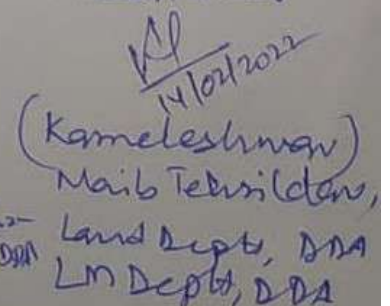 14/02/2022
(Kameleshwar)
Naib Tehsildar,
Land Deptt, DDA
DDA LM Deptt, DDA